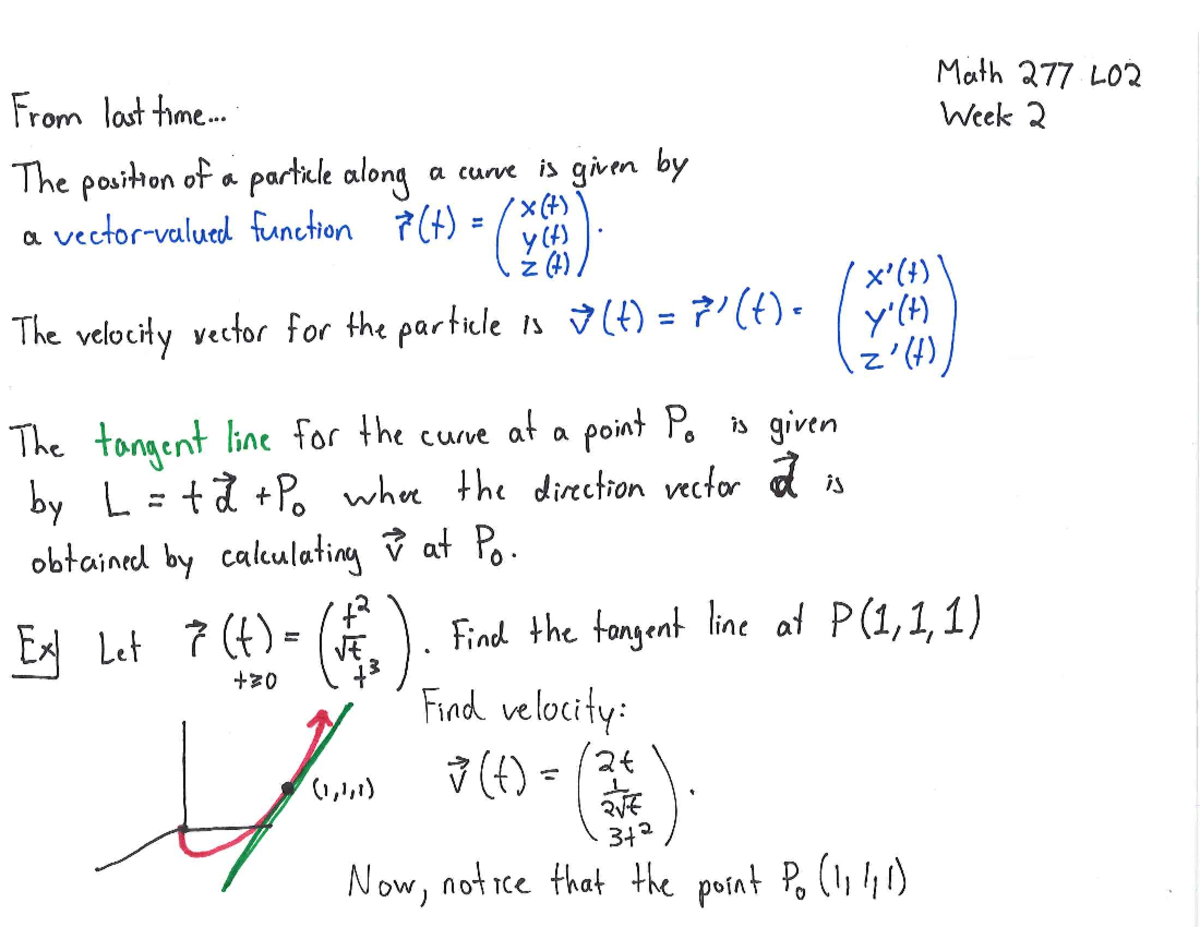 Math 277 L02
Week 2
From last time...
The position of a particle along a curve is given by
a vector-valued function r⃗(t) = (x(t) y(t) z(t)).
The velocity vector for the particle is v⃗(t) = r⃗'(t) = (x'(t) y'(t) z'(t))
The tangent line for the curve at a point P₀ is given
by L = td⃗ + P₀ where the direction vector d⃗ is
obtained by calculating v⃗ at P₀.
Ex] Let r⃗(t) = (t² √t t³). Find the tangent line at P(1,1,1)
t≥0
Find velocity:
(1,1,1)
v⃗(t) = (2t 1/(2√t) 3t²).
Now, notice that the point P₀ (1,1,1)